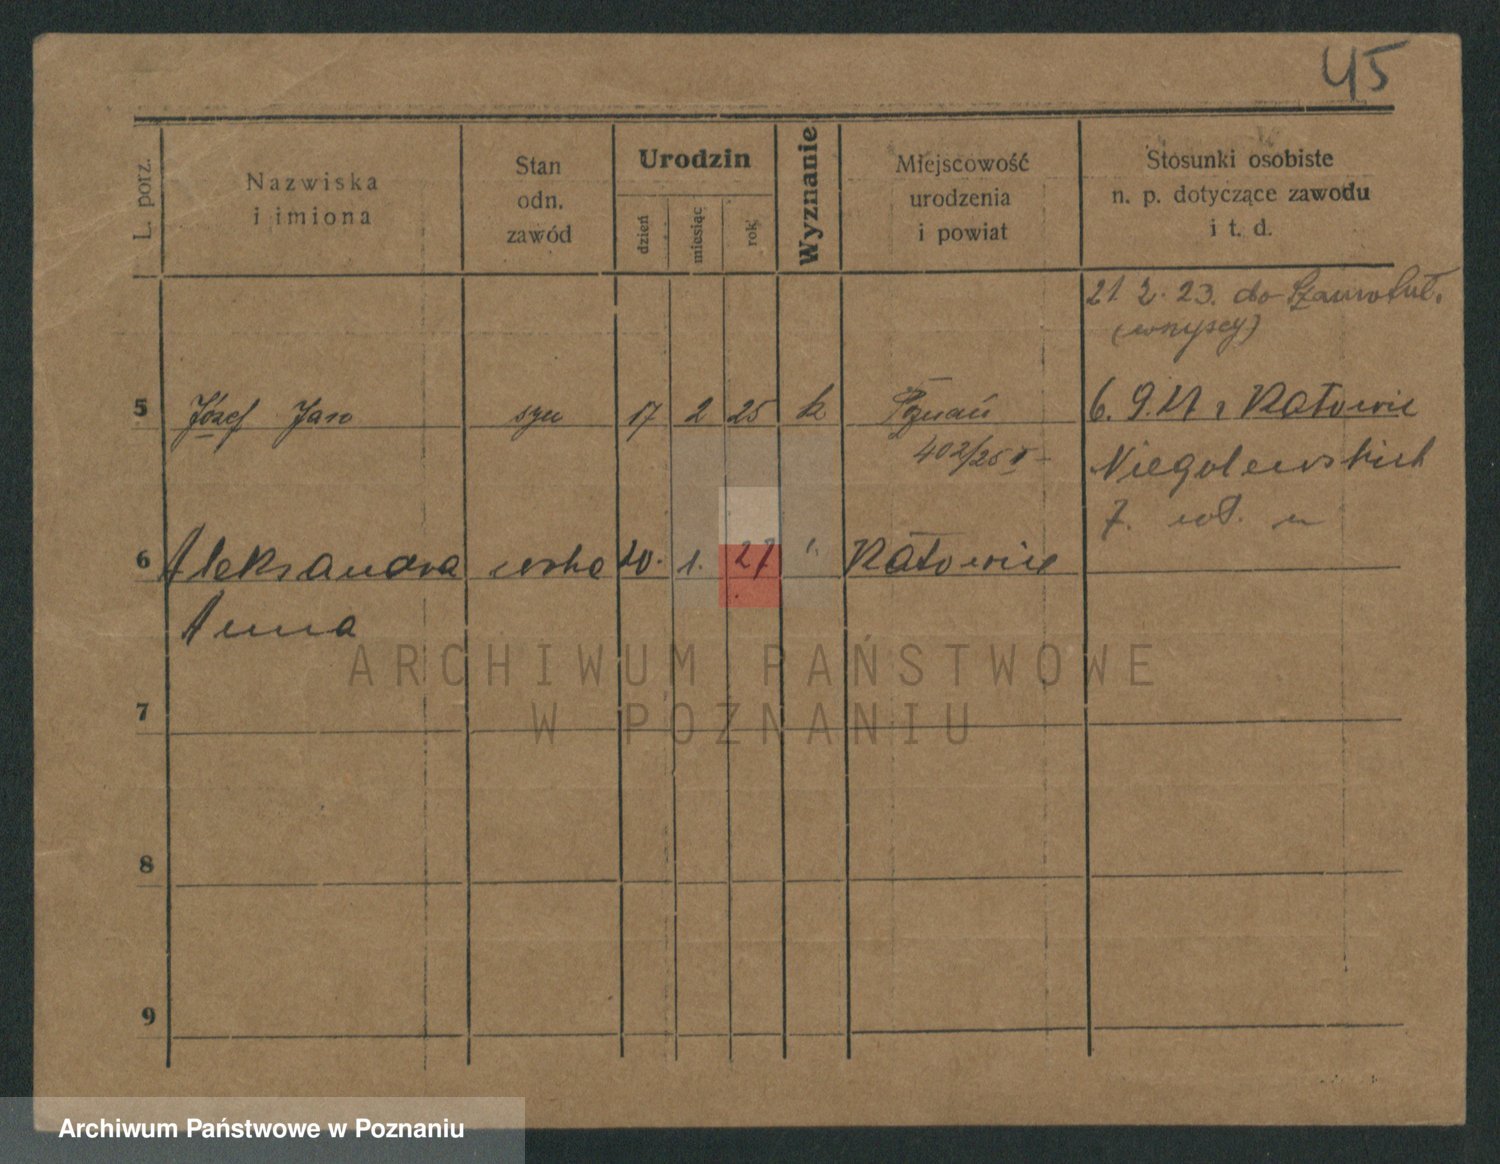 45
L. porz.
Nazwiska
i imiona
Stan
odn.
zawód
Urodzin
dzień
miesiąc
rok
Wyznanie
Miejscowość
urodzenia
i powiat
Stosunki osobiste
n. p. dotyczące zawodu
i t. d.
21 2. 23. do
5 Józef Jan syn 17 2 25 k Poznań 6. 9. z Katowic
402/25
Niegolewskich
7.
6 Aleksandra 20. 1. 27 Katowice
Anna
ARCHIWUM PAŃSTWOWE
W POZNANIU
7
8
9
Archiwum Państwowe w Poznaniu